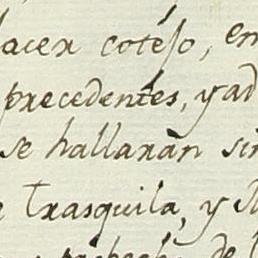 hacer cotéjo, en
precedentes, y ad
se hallaràn sin
trasquila, y